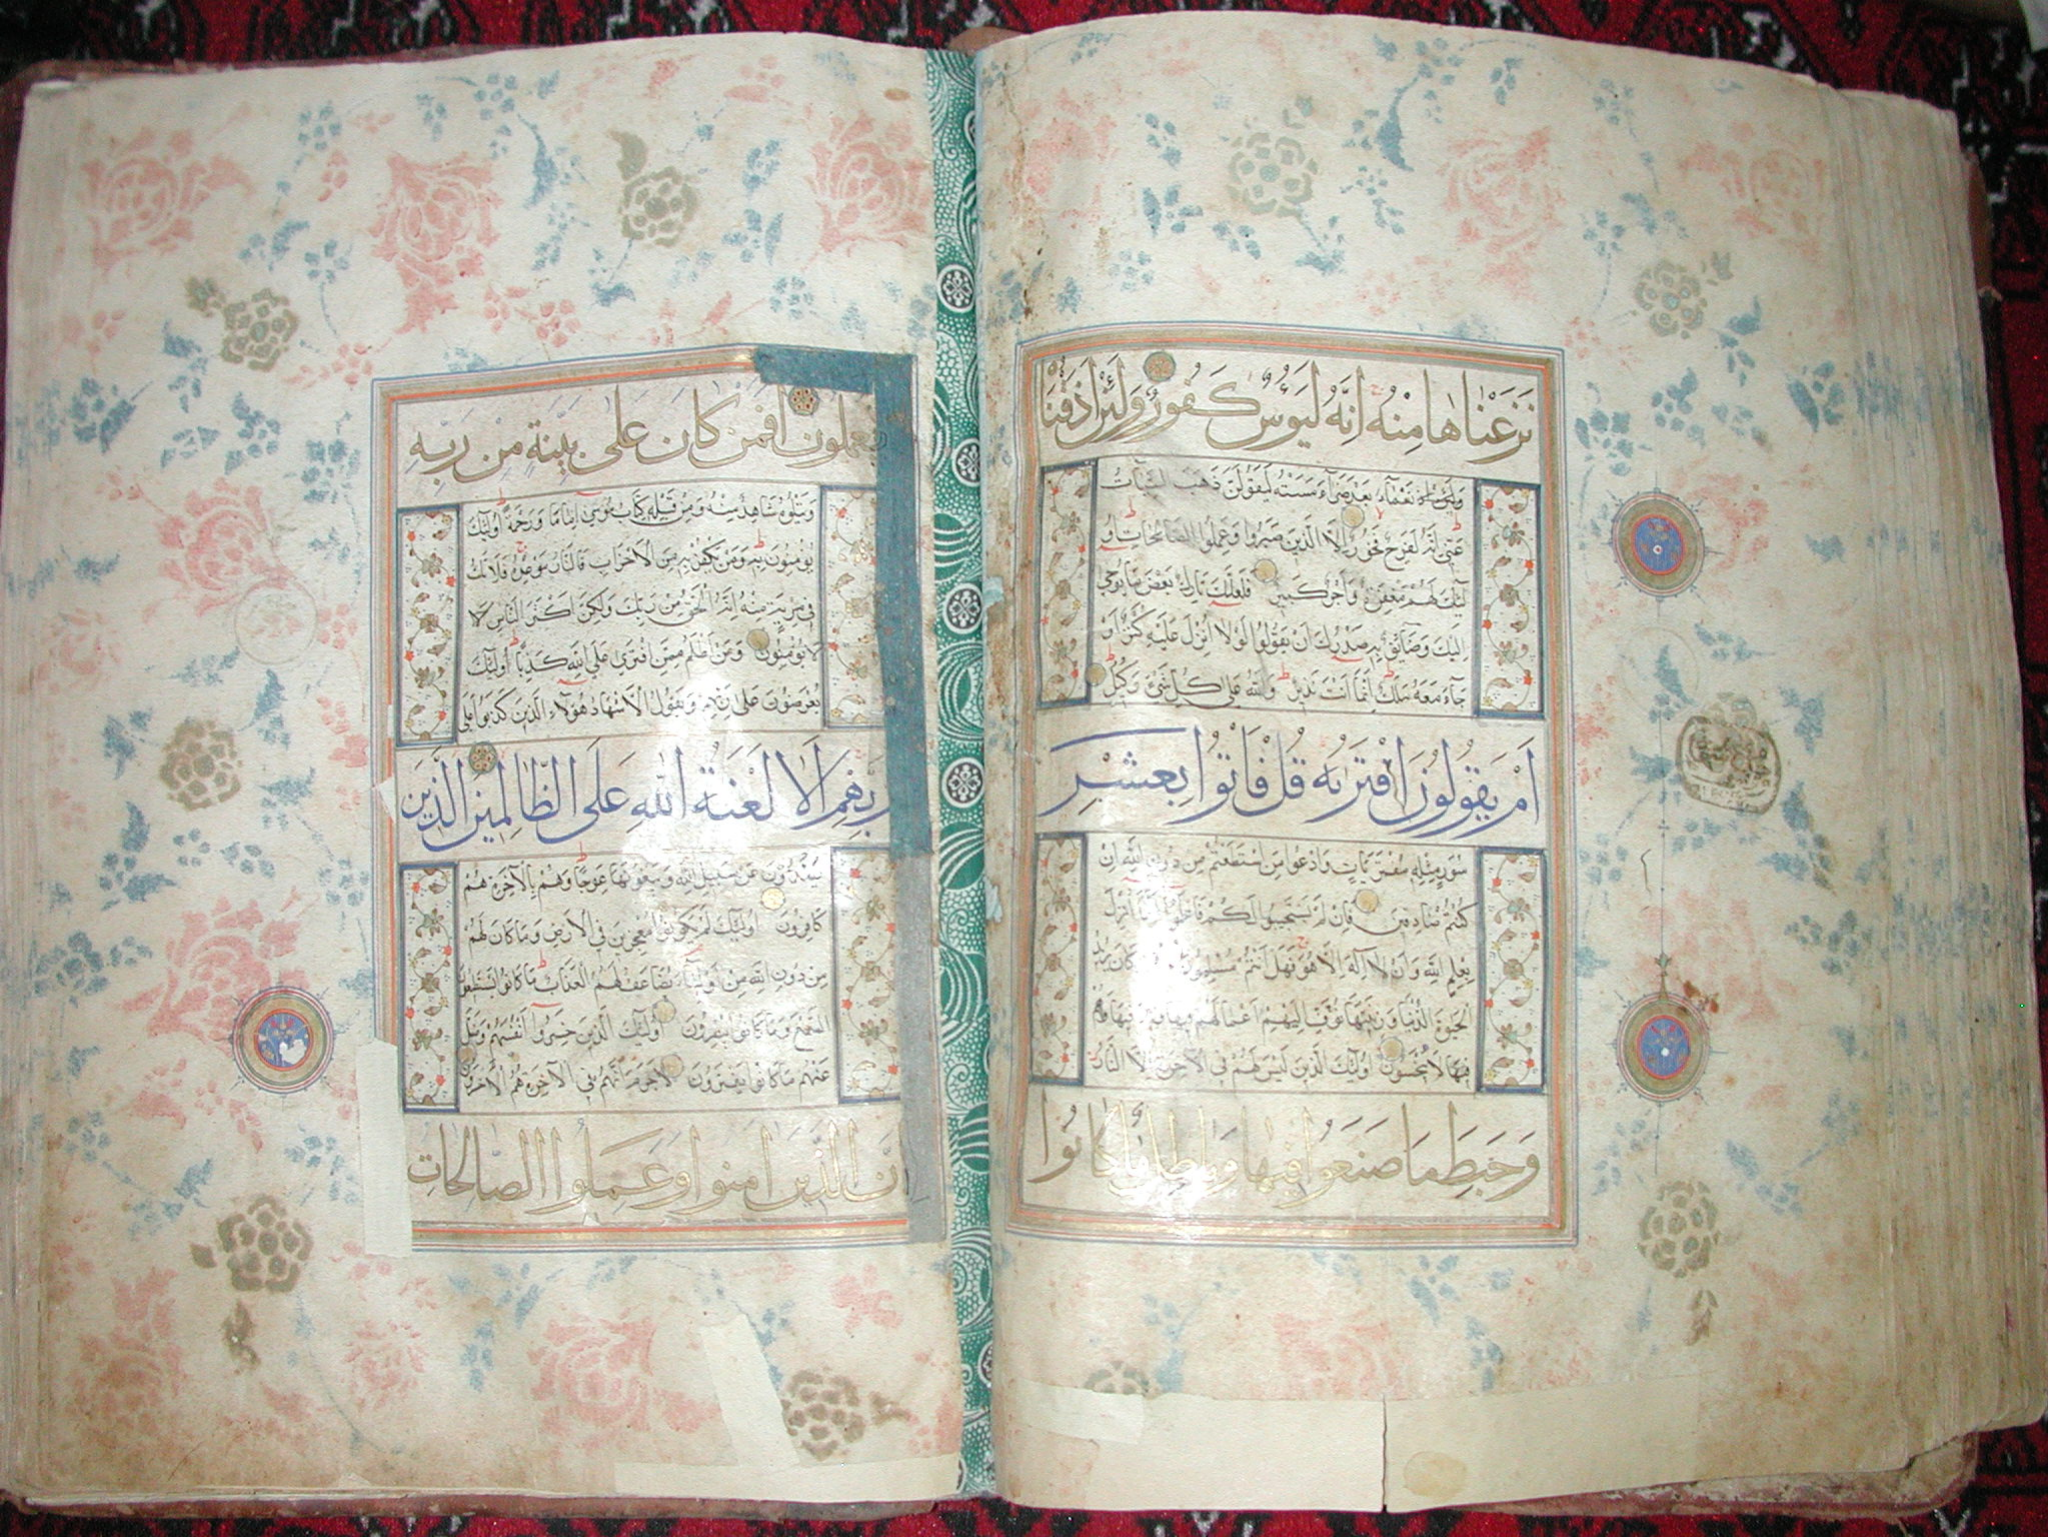 نَزَعْنَاهَا مِنْهُ اِنَّهُ لَيَؤُسٌ كَفُورٌ وَلَئِنْ اَذَقْنَا
نَعْمَآءَ بَعْدَ ضَرَّآءَ مَسَّتْهُ لَيَقُولَنَّ ذَهَبَ السَّيِّاٰتُ
عَنّٖى اِنَّهُ لَفَرِحٌ فَخُورٌ اِلَّا الَّذٖينَ صَبَرُوا وَعَمِلُوا الصَّالِحَاتِ اُو
لٰئِكَ لَهُمْ مَغْفِرَةٌ وَاَجْرٌ كَبٖيرٌ فَلَعَلَّكَ تَارِكٌ بَعْضَ مَا يُوحٰى
اِلَيْكَ وَضَآئِقٌ بِهٖ صَدْرُكَ اَنْ يَقُولُوا لَوْلَا اُنْزِلَ عَلَيْهِ كَنْزٌ اَوْ
جَآءَ مَعَهُ مَلَكٌ اِنَّمَا اَنْتَ نَذٖيرٌ وَاللّٰهُ عَلٰى كُلِّ شَىْءٍ وَكٖيلٌ
اَمْ يَقُولُونَ افْتَرٰيهُ قُلْ فَاْتُوا بِعَشْرِ
سُوَرٍ مِثْلِهٖ مُفْتَرَيَاتٍ وَادْعُوا مَنِ اسْتَطَعْتُمْ مِنْ دُونِ اللّٰهِ اِنْ
كُنْتُمْ صَادِقٖينَ فَاِنْ لَمْ يَسْتَجٖيبُوا لَكُمْ فَاعْلَمُوا اَنَّمَا اُنْزِلَ
بِعِلْمِ اللّٰهِ وَاَنْ لَا اِلٰهَ اِلَّا هُوَ فَهَلْ اَنْتُمْ مُسْلِمُونَ مَنْ كَانَ يُرٖيدُ
الْحَيٰوةَ الدُّنْيَا وَزٖينَتَهَا نُوَفِّ اِلَيْهِمْ اَعْمَالَهُمْ فٖيهَا وَهُمْ
فٖيهَا لَا يُبْخَسُونَ اُولٰئِكَ الَّذٖينَ لَيْسَ لَهُمْ فِى الْاٰخِرَةِ اِلَّا النَّارُ
وَحَبِطَ مَا صَنَعُوا فٖيهَا وَبَاطِلٌ مَا كَانُوا
يعملون افمن كان على بينة من ربه
وَيَتْلُوهُ شَاهِدٌ مِنْهُ وَمِنْ قَبْلِهٖ كِتَابُ مُوسٰى اِمَامًا وَرَحْمَةً اُولٰئِكَ
يُؤْمِنُونَ بِهٖ وَمَنْ يَكْفُرْ بِهٖ مِنَ الْاَحْزَابِ فَالنَّارُ مَوْعِدُهُ فَلَا تَكُ
فٖى مِرْيَةٍ مِنْهُ اِنَّهُ الْحَقُّ مِنْ رَبِّكَ وَلٰكِنَّ اَكْثَرَ النَّاسِ لَا
لَا يُؤْمِنُونَ وَمَنْ اَظْلَمُ مِمَّنِ افْتَرٰى عَلَى اللّٰهِ كَذِبًا اُولٰئِكَ
يُعْرَضُونَ عَلٰى رَبِّهِمْ وَيَقُولُ الْاَشْهَادُ هٰؤُلَاءِ الَّذٖينَ كَذَبُوا عَلٰى
رَبِّهِمْ اَلَا لَعْنَةُ اللّٰهِ عَلَى الظَّالِمٖينَ الَّذٖينَ
يَصُدُّونَ عَنْ سَبٖيلِ اللّٰهِ وَيَبْغُونَهَا عِوَجًا وَهُمْ بِالْاٰخِرَةِ هُمْ
كَافِرُونَ اُولٰئِكَ لَمْ يَكُونُوا مُعْجِزٖينَ فِى الْاَرْضِ وَمَا كَانَ لَهُمْ
مِنْ دُونِ اللّٰهِ مِنْ اَوْلِيَآءَ يُضَاعَفُ لَهُمُ الْعَذَابُ مَا كَانُوا يَسْتَطٖيعُونَ
السَّمْعَ وَمَا كَانُوا يُبْصِرُونَ اُولٰئِكَ الَّذٖينَ خَسِرُوا اَنْفُسَهُمْ وَضَلَّ
عَنْهُمْ مَا كَانُوا يَفْتَرُونَ لَاجَرَمَ اَنَّهُمْ فِى الْاٰخِرَةِ هُمُ الْاَخْسَرُونَ
اِنَّ الَّذٖينَ اٰمَنُوا وَعَمِلُوا الصَّالِحَاتِ